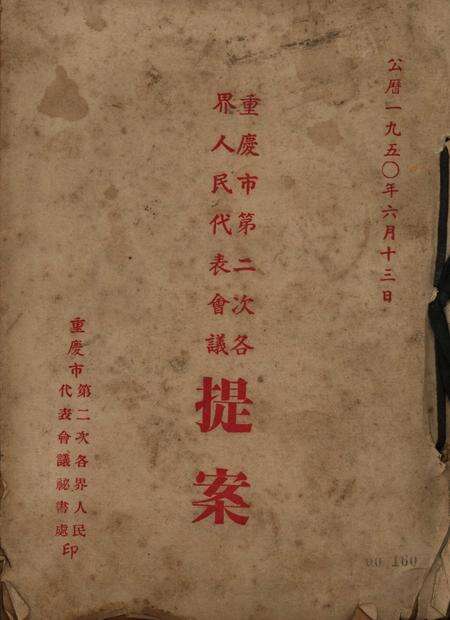 公曆一九五〇年六月十三日
重慶市第二次各
界人民代表會議
提案
重慶市
第二次各界人民
代表會議祕書處印